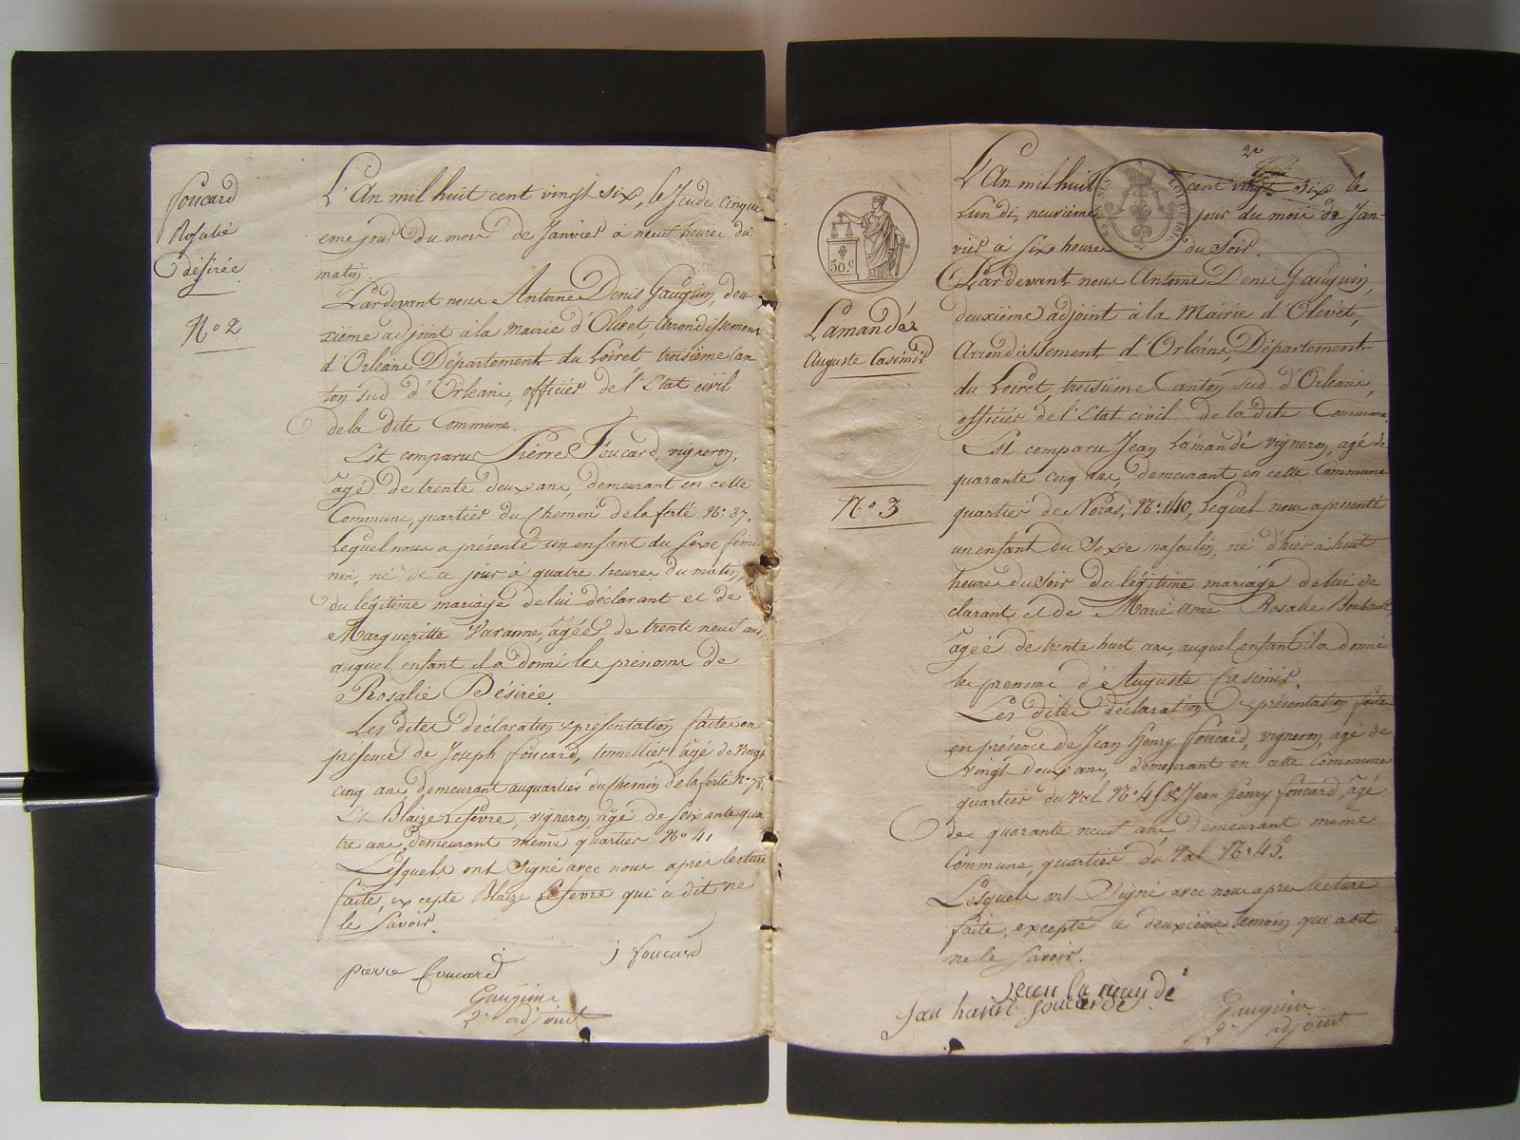 Foucard
Rosalie
désirée
N° 2
L'An mil huit cent vingt six, le Jeudi cinqui
eme jour du mois de Janvier à neuf heures du
matin.
Pardevant nous Antoine Denis Gauguin, deu
xième adjoint à la mairie d'Olivet, Arrondissement
d'Orléans Département du Loiret troisième Can
ton sud d'Orleans, officier de l'Etat civil
de la dite Commune.
Est comparu Pierre Foucard vigneron,
âgé de trente deux ans, demeurant en cette
Commune, quartier du Chemin de la ferté N° 37.
Lequel nous a présenté un enfant du sexe femi
nin, né de ce jour à quatre heures du matin,
du légitime mariage de lui déclarant et de
Margueritte Varanne, âgée de trente neuf ans,
auquel enfant il a donné les prénoms de
Rosalie Désirée.
Les dites déclaration & présentation faites en
présence de Joseph foucard, tonnellier âgé de vingt
cinq ans demeurant au quartier du Chemin de la ferté N°
Et Blaize Lefevre, vigneron, âgé de soixante qua
tre ans, demeurant même quartier N° 41
Lesquels ont signé avec nous après lecture
faite, excepté Blaize Lefevre qui a dit ne
le Savoir.
pierre foucard
J foucard
Gauguin
2e adjoint
30.c
Lamandé
Auguste Casimir
N° 3
2e
L'An mil huit cent vingt six le
Lundi, neuvième jour du mois de Jan-
vier à six heures du Soir.
Pardevant nous Antoine Denis Gauguin,
deuxième adjoint à la Mairie d'Olivet,
Arrondissement, d'Orléans, Département
du Loiret, troisième Canton sud d'Orleans,
officier de l'Etat civil de la dite Commune.
Est comparu Jean Lamandé vigneron, agé de
quarante cinq ans, demeurant en cette Commune
quartier de Noras, N° 140, Lequel nous a présenté
un enfant du Sexe masculin, né d'hier à huit
heures du Soir du légitime mariage de lui dé
clarant et de Marie Anne Rosalie
âgée de trente huit ans, auquel enfant il a donné
les prenoms d'Auguste Casimir.
Les dites déclaration & présentation faites
en présence de Jean Henry foucard, vigneron, agé de
Vingt deux ans, demeurant en cette Commune
quartier du Val N° 45 & Jean henry foucard, âgé
de quarante neuf ans demeurant même
Commune, quartier du Val N° 45.
Lesquels ont Signé avec nous après lecture
faite, excepté le deuxième témoin qui a dit
ne le Savoir.
jean lamandé
Jan hanri foucarde
Gauguin
2e adjoint